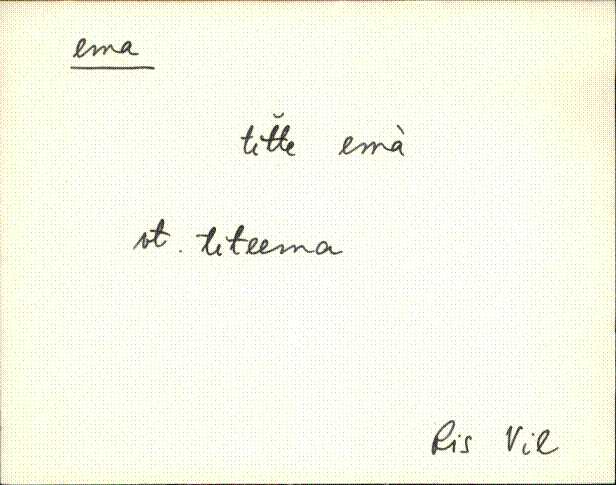 ema
tit̆te emà
vt. titeema
Ris Vil